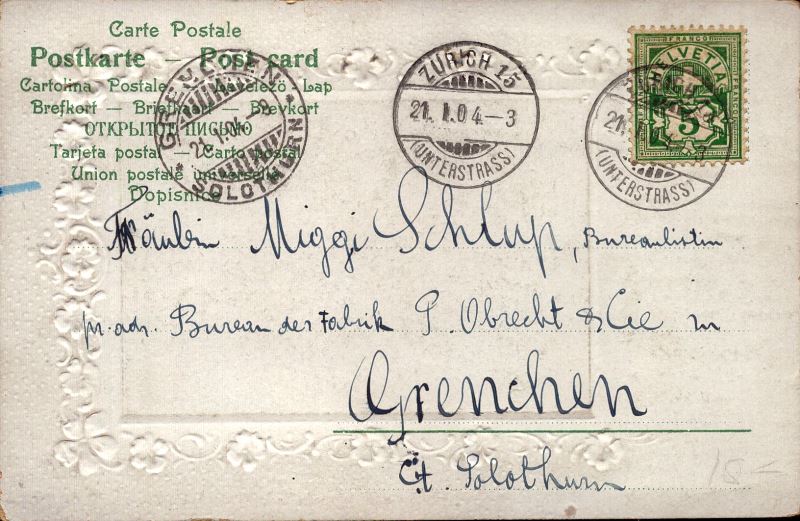 Carte Postale
Postkarte — Post card
Cartolina Postale — Levelező-Lap
Brefkort — Briefkaart — Brevkort
ОТКРЫТОЕ ПИСЬМО
Tarjeta postal — Carto postal
Union postale universelle
Dopisnice
GRENCHEN
04.-9
SOLOTHURN
ZÜRICH 15
21. I. 04.-3
(UNTERSTRASS)
FRANCO
HELVETIA
5
21.
(UNTERSTRASS)
Fräulein Miggi Schlup, Bureaulistin
pr. adr. Bureau der Fabrik P. Obrecht & Cie in
Grenchen
Ct. Solothurn